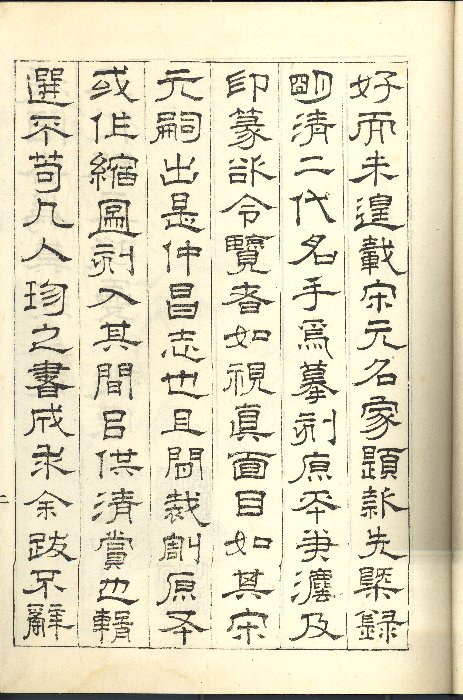 好而未遑載宋元名家題款先槩録
明清二代名手爲摹刻原本筆灋及
印篆欲令覽者如視眞面目如其宋
元嗣出是仲昌志也且間裁割原本
或作縮圖刻入其間㠯供清賞也輯
選不苟凡人珍之書成求余跋不辭